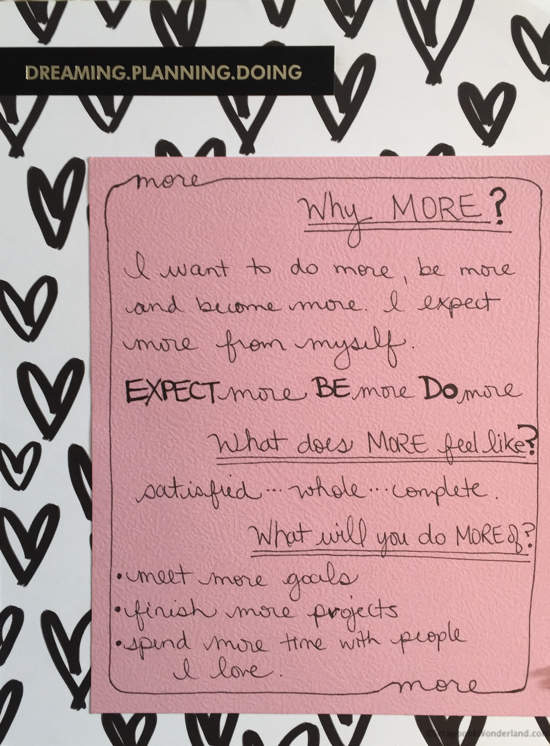 DREAMING.PLANNING.DOING
more
Why MORE?
I want to do more, be more
and become more. I expect
more from myself.
EXPECT more BE more Do more
What does MORE feel like?
satisfied... whole... complete.
What will you do MORE of?
• meet more goals
• finish more projects
• spend more time with people
I love.
more